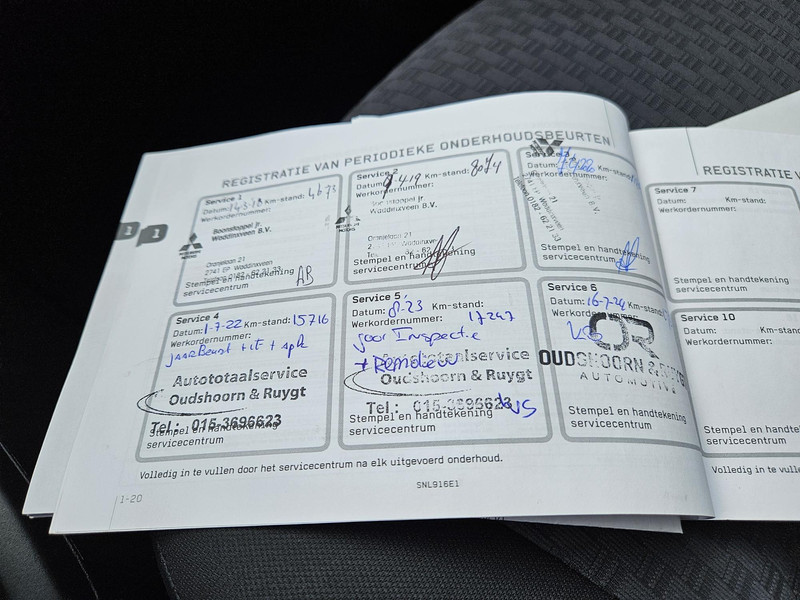 REGISTRATIE VAN PERIODIEKE ONDERHOUDSBEURTEN
Service 1
Datum: Km-stand: 4673
Werkordernummer:
Boonstoppel Jr.
Waddinxveen B.V.
Oranjelaan 21
2741 EP Waddinxveen
Telefoon 0182 - 62 21 33
Stempel en handtekening
servicecentrum
AB
Service 2
Datum: Km-stand: 8074
Werkordernummer:
Waddinxveen B.V.
Oranjelaan 21
Stempel en handtekening
servicecentrum
Service 3
Datum:
Werkordernummer:
Telefoon 0182 - 62 21 33
Stempel en handtekening
servicecentrum
Service 4
Datum: 1-7-22 Km-stand: 15716
Werkordernummer:
jaarBeurt + LF + apk
Autototaalservice
Oudshoorn & Ruygt
Tel.: 015-3696623
Stempel en handtekening
servicecentrum
Service 5
Datum: 8-23 Km-stand:
Werkordernummer: 17247
Jaar Inspectie
+ Remolie
Autototaalservice
Oudshoorn & Ruygt
Tel.: 015-3696623
Stempel en handtekening
servicecentrum
Service 6
Datum: 16-7-24 Km-stand:
Werkordernummer:
OR
OUDSHOORN & RUYGT
AUTOMOTIVE
Stempel en handtekening
servicecentrum
Volledig in te vullen door het servicecentrum na elk uitgevoerd onderhoud.
1-20
SNL916E1
1
1
REGISTRATIE VA
Service 7
Datum: Km-stand:
Werkordernummer:
Stempel en handtekening
servicecentrum
Service 10
Datum: Km-stand
Werkordernummer:
Stempel en handtekening
servicecentrum
Volledig in te vulle